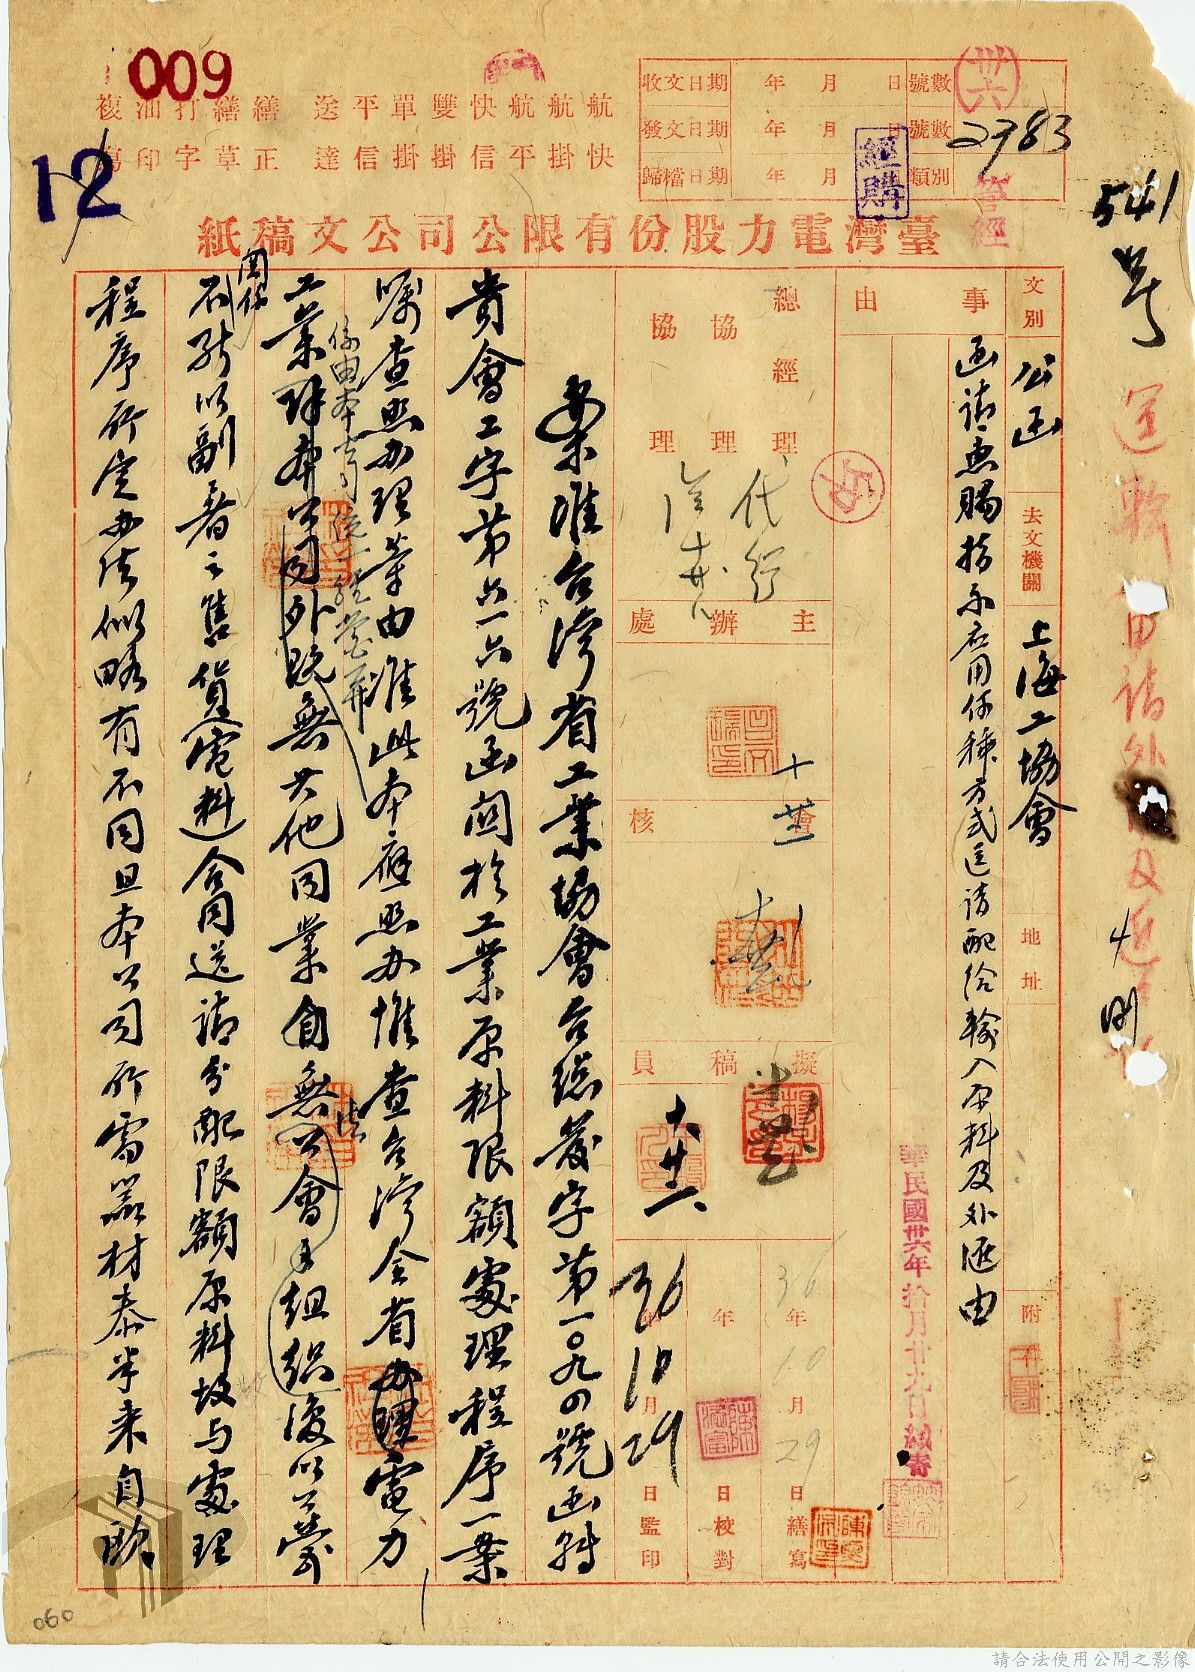 009
12
複寫 油印 打字 繕草 繕正 送達 平信 單掛 雙掛 快信 航平 航掛 航快
收文日期 年 月 日 號數
發文日期 年 月 日 號數 2783
歸檔日期 年 月 類別
經購
臺灣電力股份有限公司公文稿紙
541號
文別 公函 去文機關 上海工協會 地址 附
事由 函請惠賜指示應用何種方式逕請配給輸入原料及外匯由
華民國卅六年拾月廿九日
總經理 協理 協理
代行
主辦處
會核
擬稿員
36年10月29日監印
年 月 日校對
36年10月29日繕寫
案准台灣省工業協會台總發字第一〇九四號函轉
貴會工字第六一六號函關於工業原料限額處理程序一案
囑查照办理等由准此本應照办惟查台灣全省办理電力
係由本公司統一經營并
工業除本公司外既無其他同業自無法公會之組織復以業務
關係
不能以副署之售貨(電料)合同送請分配限額原料故与處理
程序所定办法似略有不同且本公司所需器材泰半來自歐
060
請合法使用公開之影像